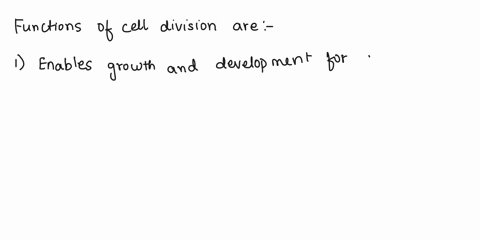 Functions of cell division are:-
1) Enables growth and development for